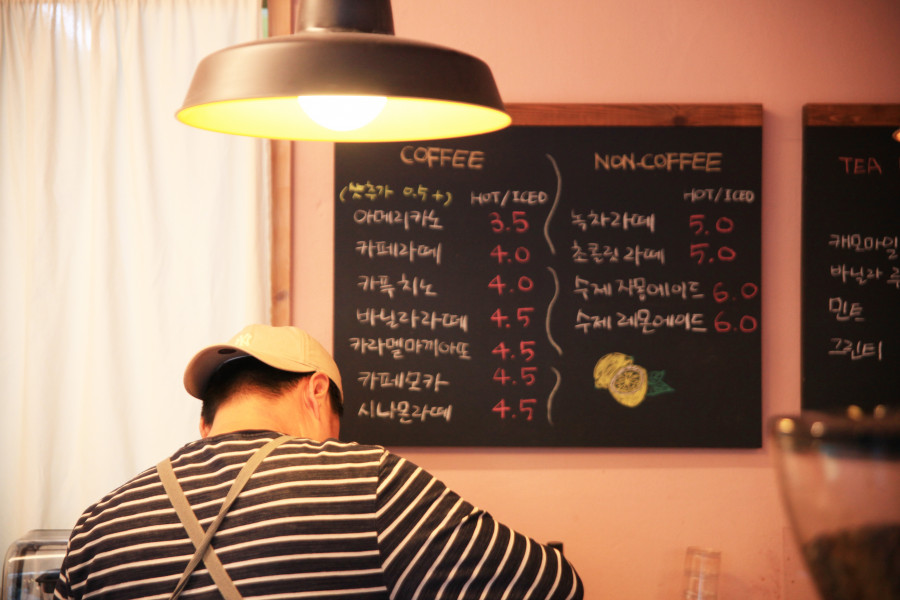 COFFEE
(샷추가 0.5+) HOT/ICED
아메리카노 3.5
카페라떼 4.0
카푸치노 4.0
바닐라라떼 4.5
카라멜마끼아또 4.5
카페모카 4.5
시나몬라떼 4.5
NON-COFFEE
HOT/ICED
녹차라떼 5.0
초콜릿라떼 5.0
수제 자몽에이드 6.0
수제 레몬에이드 6.0
TEA
캐모마일
바닐라 루
민트
그린티